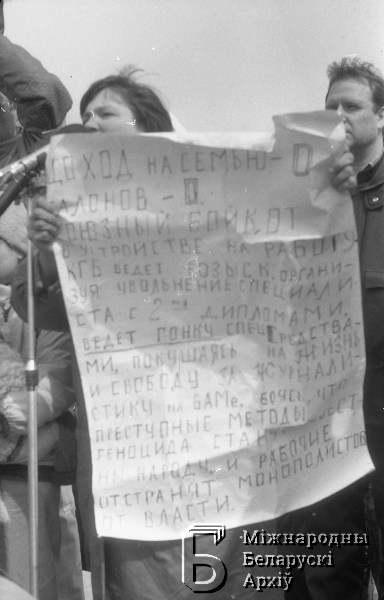 ДОХОД НА СЕМЬЮ - 0
ТАЛОНОВ - 0.
СОЮЗНЫЙ БОЙКОТ
В УСТРОЙСТВЕ НА РАБОТУ
КГБ ВЕДЕТ РОЗЫСК, ОРГАНИ-
ЗУЯ УВОЛЬНЕНИЕ СПЕЦИАЛИ-
СТА С 2мя ДИПЛОМАМИ.
ВЕДЕТ ГОНКУ СПЕЦСРЕДСТВА-
МИ, ПОКУШАЯСЬ НА ЖИЗНЬ
И СВОБОДУ ЗА ЖУРНАЛИ-
СТИКУ НА БАМе, БОЯСЬ, ЧТО
ПРЕСТУПНЫЕ МЕТОДЫ
ГЕНОЦИДА СТАНУТ
НЫ НАРОДУ И РАБОЧИЕ
ОТСТРАНЯТ МОНОПОЛИСТОВ
ОТ ВЛАСТИ.
Міжнародны
Беларускі
Архіў